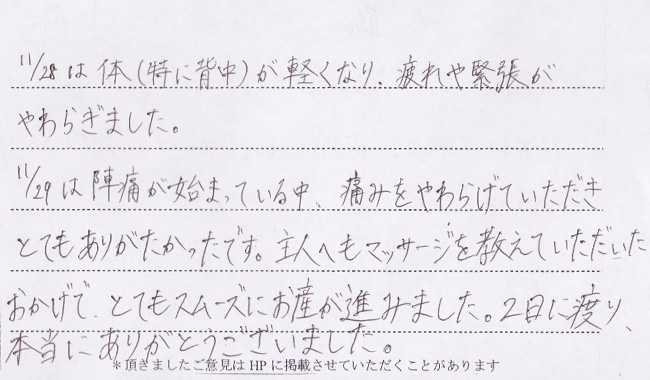 11/28は体(特に背中)が軽くなり、疲れや緊張が
やわらぎました。
11/29は陣痛が始まっている中、痛みをやわらげていただき
とてもありがたかったです。主人へもマッサージを教えていただいた
おかげで、とてもスムーズにお産が進みました。2日に渡り、
本当にありがとうございました。
＊頂きましたご意見はHPに掲載させていただくことがあります